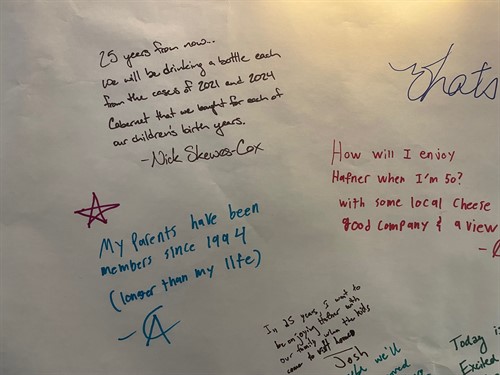 25 years from now...
we will be drinking a bottle each
from the cases of 2021 and 2024
Cabernet that we bought for each of
our children's birth years.
-Nick Skewes-Cox
Whats
How will I enjoy
Hafner when I'm 50?
with some local cheese
good company & a view
My Parents have been
members since 1994
(longer than my life)
- A
In 25 years, I want to
be enjoying Hafner with
our family when the kids
come to visit home
Josh
we'll
Today is
Excited